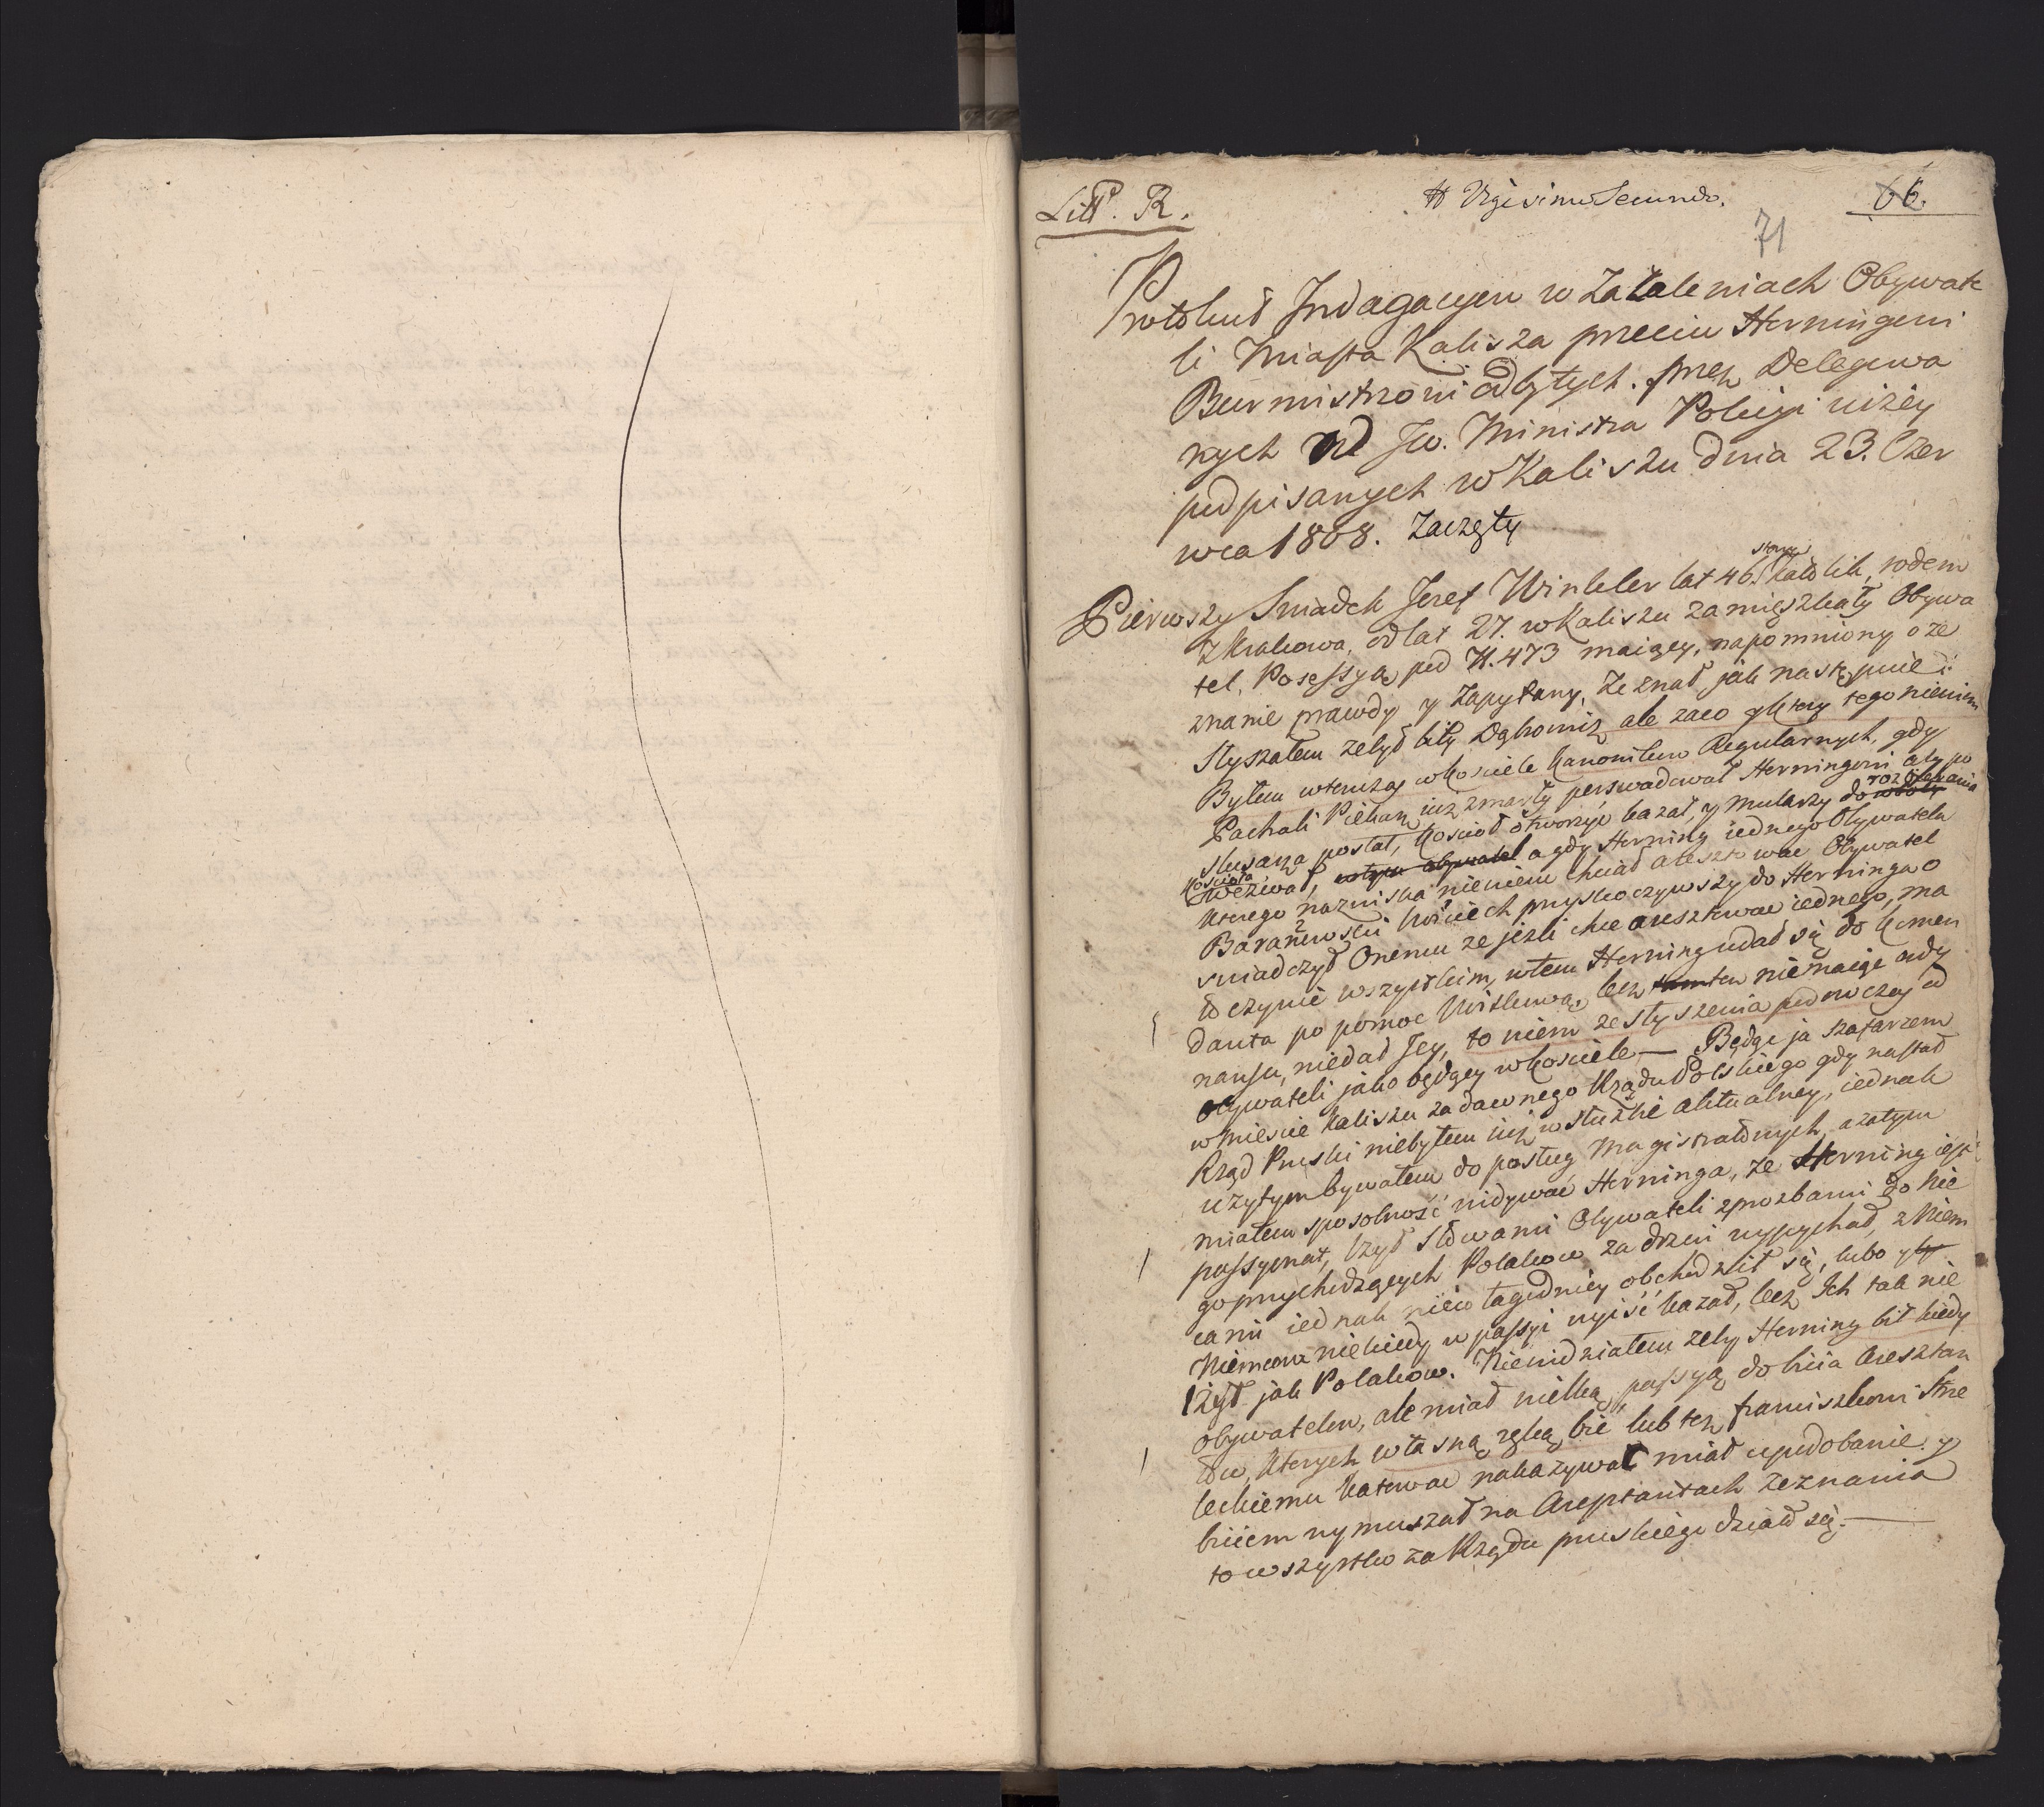 Litt. R.
Vigesimo Secundo.
66.
71
Protokuł Indagacyow w Zażaleniach Obywate
li Miasta Kalisza przeciw Herningowi
Burmistrzowi odbytych przez Delegowa
nych od Jw. Ministra Policyi niżey
podpisanych w Kaliszu dnia 23. Czer
wca 1808. Zaczęty
Pierwszy Swiadek Jozef Winkler lat 46. stary Katolik, rodem
z Krakowa, od lat 27. w Kaliszu zamięszkały Obywa
tel, Possessyą pod N. 473 maiący, napomniony o ze
znanie prawdy y zapytany, zeznał jak następuie:
Słyszałem ze był bity Dąbrowicz ale zaco y ktory tego niewiem
Byłem wtenczas w kosciele Kanonikow Regularnych, gdy
Pachali Piekarz iuz zmarły perswadował Herningowi aby po
słuszny postał, kosciół otworzyć kazał, y mularzy do roboty rozbierania
kościoła wezwał, w tym obywatel a gdy Herning iednego Obywatela
ktorego nazwiska niewiem chciał aresztować Obywatel
Baranowski Woiciech przyskoczywszy do Herninga o
swiadczył Onemu ze jezli chce aresztować iednego, ma
to czynić wszystkim, wtem Herning udał się do Komen
danta po pomoc Woiskową, lecz tamten nie maiąc ordy
nansu, niedał Jey, to wiem ze słyszenia podowczas od
obywateli jako będący w kosciele — Będąc ja szafarzem
w Miescie Kaliszu za dawnego Rządu Polskiego gdy nastał
Rząd Pruski niebyłem iuz w służbie aktualney, iednak
użytym bywałem do posług Magistratowych, a zatym
miałem sposobność widywać Herninga, ze Herning iest
passyonat, lżył słowami Obywateli z prozbami do nie
go przychodzących Polakow za drzwi wypychał, z Niem
cami iednak nieco łagodniey obchodził się, lubo y
Niemcom niekiedy w passyi wyiść kazał, lecz Ich tak nie
lżył jak Polakow. Niewidziałem zeby Herning bił kiedy
obywatelow, ale miał wielką passyą do bicia Aresztan
tow, ktorych własną ręką bić lub tez Franciszkowi Strze
leckiemu katować nakazywać miał upodobanie y
biciem wymuszał na Aresztantach zeznania
to wszystko za Rządu pruskiego działo się. —